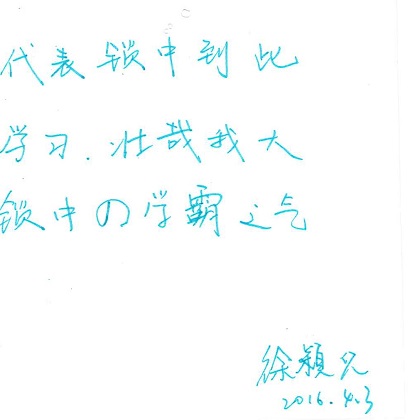 代表锁中到此
学习.壮哉我大
锁中の学霸之气
徐颖
2016.4.3